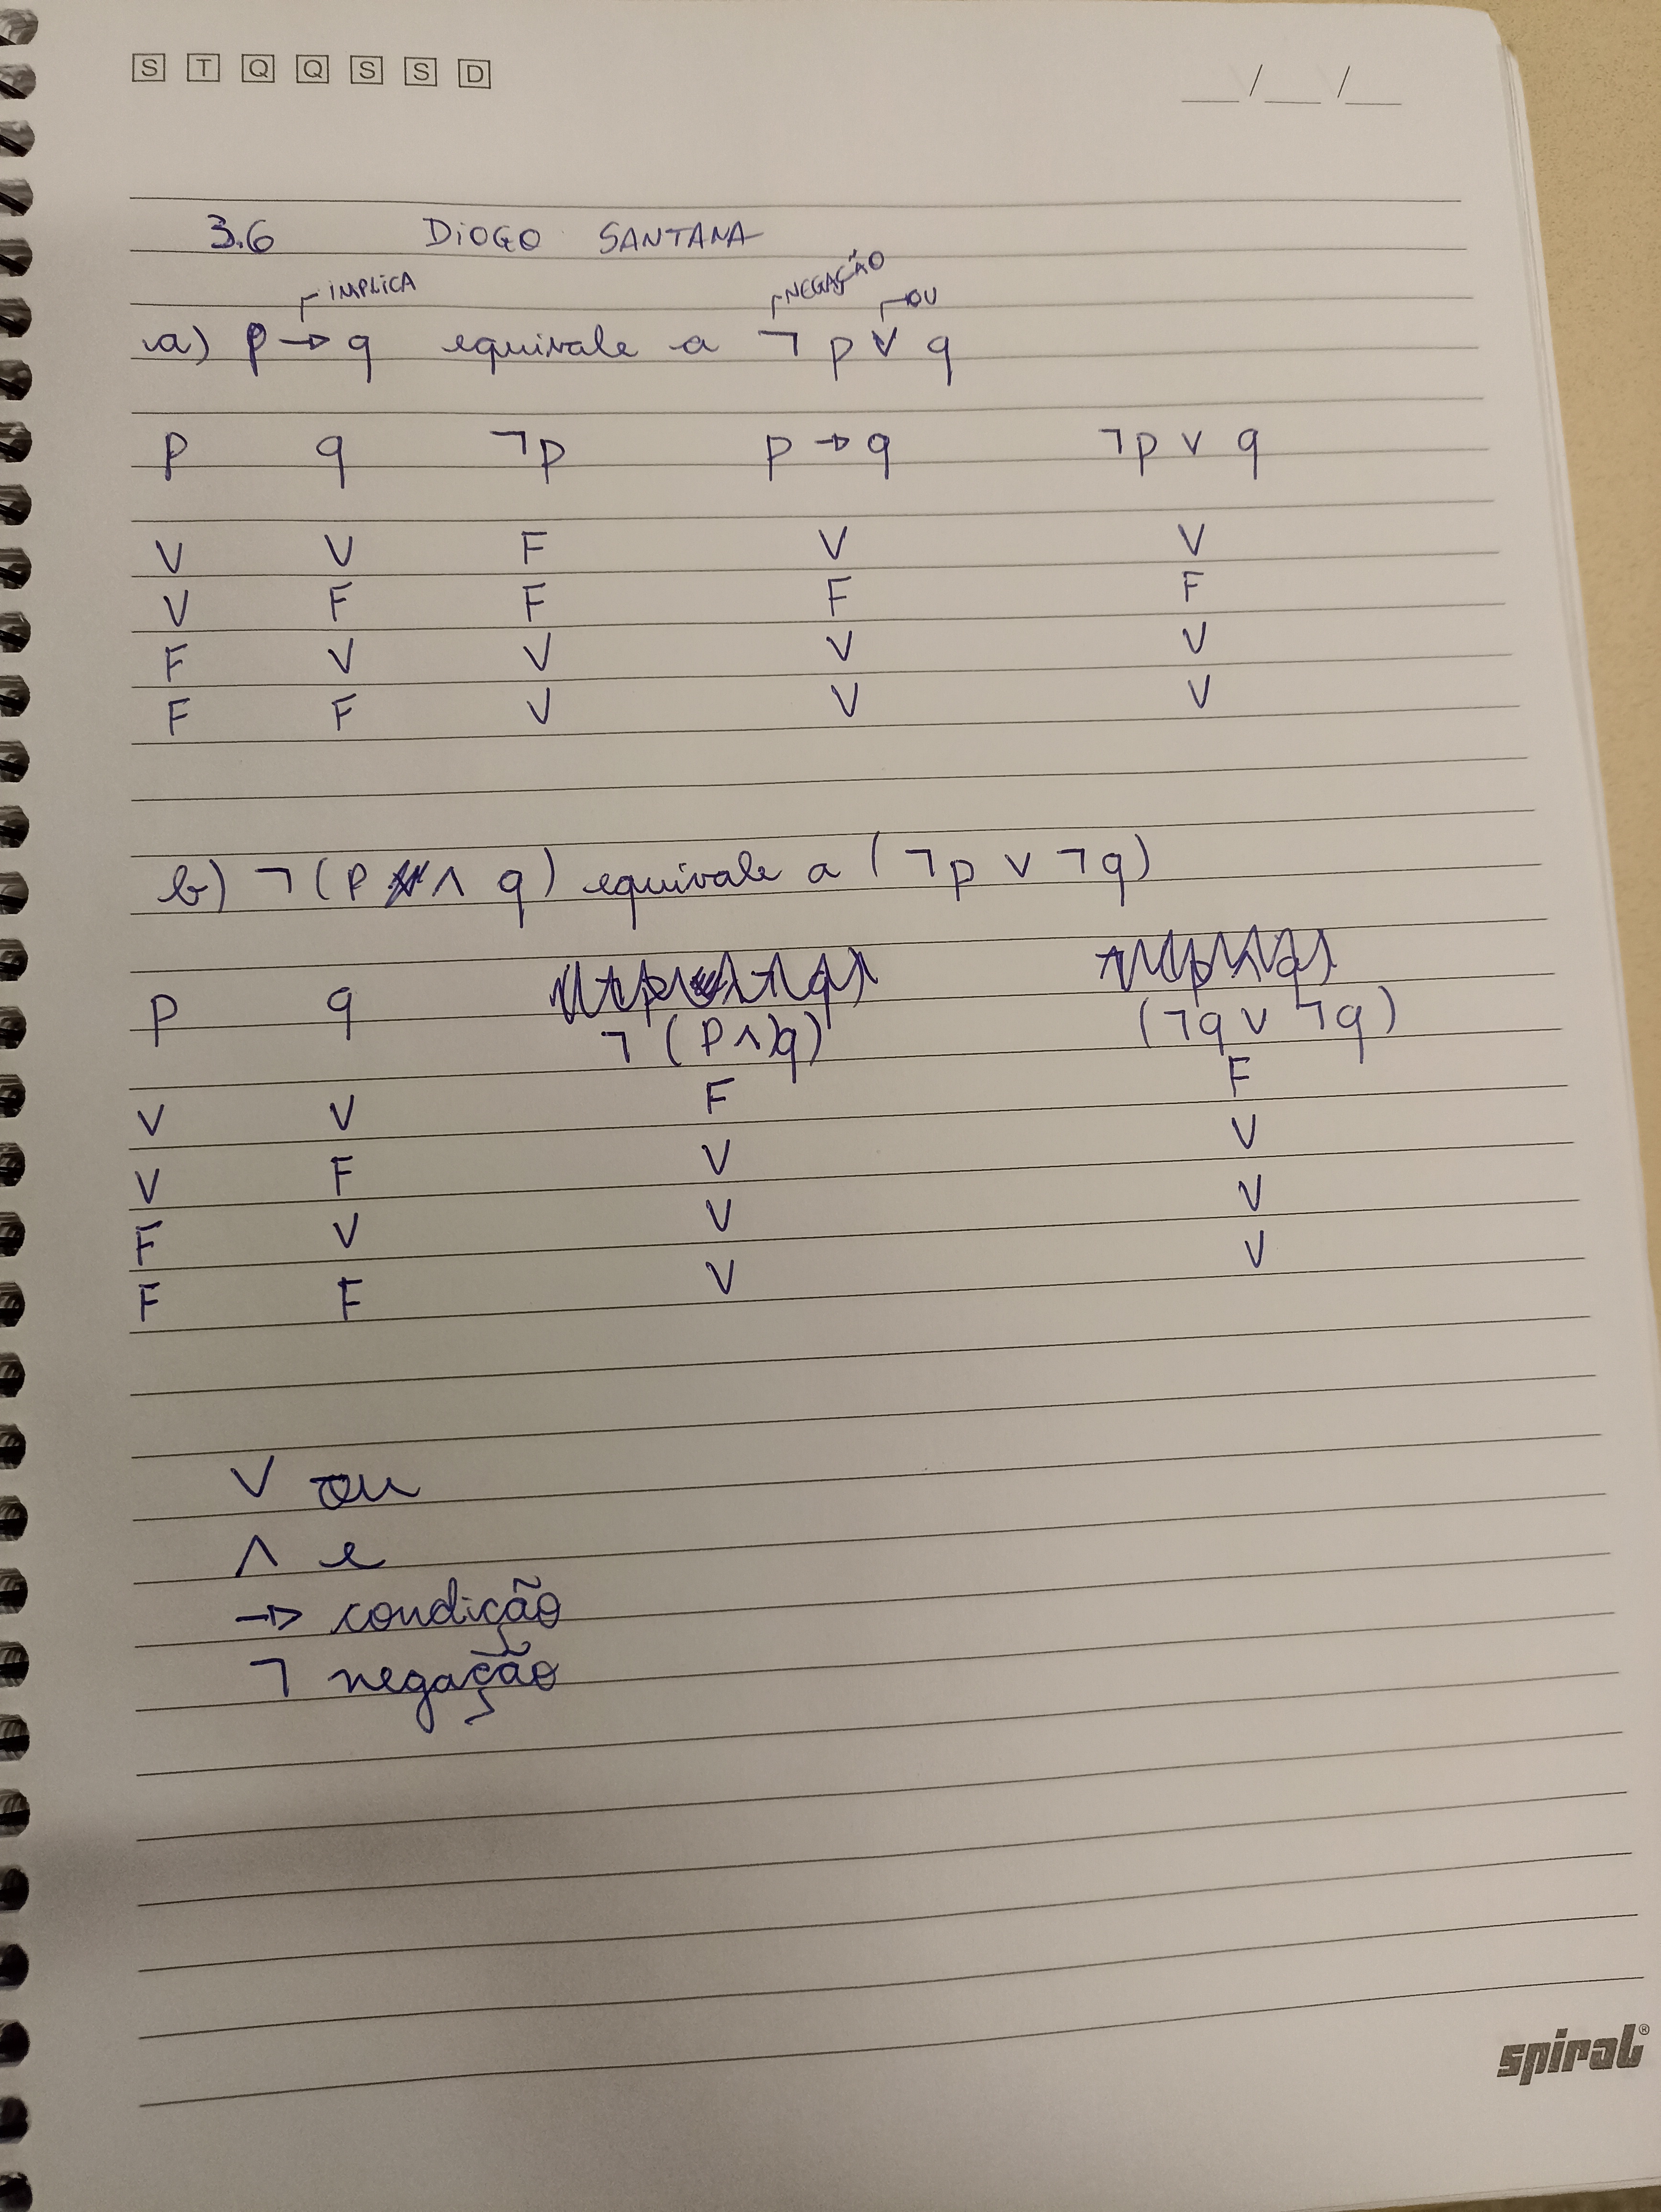 S T Q Q S S D
__/__/__
3.6 DIOGO SANTANA
IMPLICA NEGAÇÃO OU
a) p → q equivale a ¬ p ∨ q
p q ¬p p → q ¬p ∨ q
V V F V V
V F F F F
F V V V V
F F V V V
b) ¬ (P ∧ q) equivale a (¬p ∨ ¬q)
P q ¬ (P ∧ q) (¬q ∨ ¬q)
V V F F
V F V V
F V V V
F F V V
∨ ou
∧ e
→ condição
¬ negação
spiral®